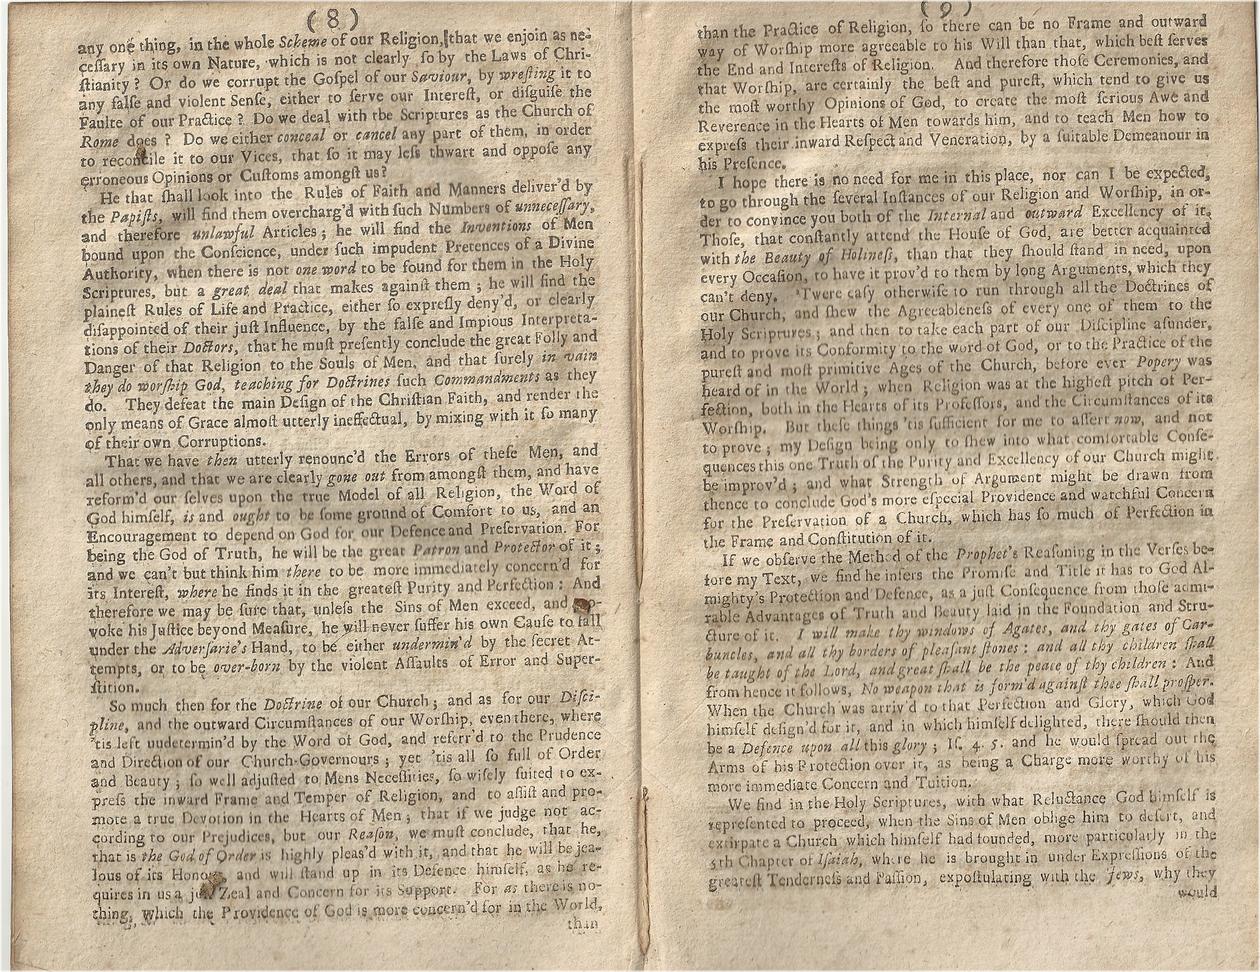 (8)
any one thing, in the whole Scheme of our Religion, that we enjoin as ne-
ceſſary in its own Nature, which is not clearly ſo by the Laws of Chri-
ſtianity? Or do we corrupt the Goſpel of our Saviour, by wreſting it to
any falſe and violent Senſe, either to ſerve our Intereſt, or diſguiſe the
Faults of our Practice? Do we deal with the Scriptures as the Church of
Rome does? Do we either conceal or cancel any part of them, in order
to reconcile it to our Vices, that ſo it may leſs thwart and oppoſe any
erroneous Opinions or Cuſtoms amongſt us?
He that ſhall look into the Rules of Faith and Manners deliver'd by
the Papiſts, will find them overcharg'd with ſuch Numbers of unneceſſary,
and therefore unlawful Articles; he will find the Inventions of Men
bound upon the Conſcience, under ſuch impudent Pretences of a Divine
Authority, when there is not one word to be found for them in the Holy
Scriptures, but a great deal that makes againſt them; he will find the
plaineſt Rules of Life and Practice, either ſo expreſly deny'd, or clearly
diſappointed of their juſt Influence, by the falſe and Impious Interpreta-
tions of their Doctors, that he muſt preſently conclude the great Folly and
Danger of that Religion to the Souls of Men, and that ſurely in vain
they do worſhip God, teaching for Doctrines ſuch Commandments as they
do. They defeat the main Deſign of the Chriſtian Faith, and render the
only means of Grace almoſt utterly ineffectual, by mixing with it ſo many
of their own Corruptions.
That we have then utterly renounc'd the Errors of theſe Men, and
all others, and that we are clearly gone out from amongſt them, and have
reform'd our ſelves upon the true Model of all Religion, the Word of
God himſelf, is and ought to be ſome ground of Comfort to us, and an
Encouragement to depend on God for our Defence and Preſervation. For
being the God of Truth, he will be the great Patron and Protector of it;
and we can't but think him there to be more immediately concern'd for
its Intereſt, where he finds it in the greateſt Purity and Perfection: And
therefore we may be ſure that, unleſs the Sins of Men exceed, and
voke his Juſtice beyond Meaſure, he will never ſuffer his own Cauſe to fall
under the Adverſarie's Hand, to be either undermin'd by the ſecret At-
tempts, or to be over-born by the violent Aſſaults of Error and Super-
ſtition.
So much then for the Doctrine of our Church; and as for our Diſci-
pline, and the outward Circumſtances of our Worſhip, even there, where
'tis left undetermin'd by the Word of God, and referr'd to the Prudence
and Direction of our Church-Governours; yet 'tis all ſo full of Order
and Beauty; ſo well adjuſted to Mens Neceſſities, ſo wiſely ſuited to ex-
preſs the inward Frame and Temper of Religion, and to aſſiſt and pro-
mote a true Devotion in the Hearts of Men; that if we judge not ac-
cording to our Prejudices, but our Reaſon, we muſt conclude, that he,
that is the God of Order is highly pleas'd with it, and that he will be jea-
lous of its Honour, and will ſtand up in its Defence himſelf, as he re-
quires in us a juſt Zeal and Concern for its Support. For as there is no-
thing, which the Providence of God is more concern'd for in the World,
than
(9)
than the Practice of Religion, ſo there can be no Frame and outward
way of Worſhip more agreeable to his Will than that, which beſt ſerves
the End and Intereſts of Religion. And therefore thoſe Ceremonies, and
that Worſhip, are certainly the beſt and pureſt, which tend to give us
the moſt worthy Opinions of God, to create the moſt ſerious Awe and
Reverence in the Hearts of Men towards him, and to teach Men how to
expreſs their inward Reſpect and Veneration, by a ſuitable Demeanour in
his Preſence.
I hope there is no need for me in this place, nor can I be expected,
to go through the ſeveral Inſtances of our Religion and Worſhip, in or-
der to convince you both of the Internal and outward Excellency of it.
Thoſe, that conſtantly attend the Houſe of God, are better acquainted
with the Beauty of Holineſs, than that they ſhould ſtand in need, upon
every Occaſion, to have it prov'd to them by long Arguments, which they
can't deny. 'Twere eaſy otherwiſe to run through all the Doctrines of
our Church, and ſhew the Agreeableneſs of every one of them to the
Holy Scriptures; and then to take each part of our Diſcipline aſunder,
and to prove its Conformity to the word of God, or to the Practice of the
pureſt and moſt primitive Ages of the Church, before ever Popery was
heard of in the World; when Religion was at the higheſt pitch of Per-
fection, both in the Hearts of its Profeſſors, and the Circumſtances of its
Worſhip. But theſe things 'tis ſufficient for me to aſſert now, and not
to prove; my Deſign being only to ſhew into what comfortable Conſe-
quences this one Truth of the Purity and Excellency of our Church might
be improv'd; and what Strength of Argument might be drawn from
thence to conclude God's more eſpecial Providence and watchful Concern
for the Preſervation of a Church, which has ſo much of Perfection in
the Frame and Conſtitution of it.
If we obſerve the Method of the Prophet's Reaſoning in the Verſes be-
fore my Text, we find he infers the Promiſe and Title it has to God Al-
mighty's Protection and Defence, as a juſt Conſequence from thoſe admi-
rable Advantages of Truth and Beauty laid in the Foundation and Stru-
cture of it. I will make thy windows of Agates, and thy gates of Car-
buncles, and all thy borders of pleaſant ſtones: and all thy children ſhall
be taught of the Lord, and great ſhall be the peace of thy children: And
from hence it follows, No weapon that is form'd againſt thee ſhall proſper.
When the Church was arriv'd to that Perfection and Glory, which God
himſelf deſign'd for it, and in which himſelf delighted, there ſhould then
be a Defence upon all this glory; Iſ. 4. 5. and he would ſpread out the
Arms of his Protection over it, as being a Charge more worthy of his
more immediate Concern and Tuition.
We find in the Holy Scriptures, with what Reluctance God himſelf is
repreſented to proceed, when the Sins of Men oblige him to deſert, and
extirpate a Church which himſelf had founded, more particularly in the
5th Chapter of Iſaiah, where he is brought in under Expreſſions of the
greateſt Tenderneſs and Paſſion, expoſtulating with the Jews, why they
would